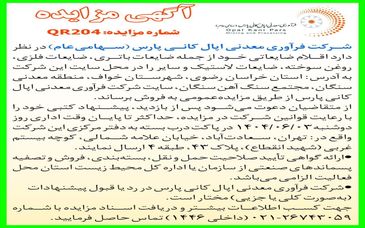 آگهی مزایده
شماره مزایده: QR204
Opal Kani Pars
شرکت فرآوری معدنی اپال کانی پارس (سهامی عام) در نظر
دارد اقلام ضایعاتی خود از جمله ضایعات باتری، ضایعات فلزی،
روغن سوخته، ضایعات لاستیک و سایر را در محل سایت این شرکت
به آدرس: استان خراسان رضوی، شهرستان خواف، منطقه معدنی
سنگان، مجتمع سنگ آهن سنگان، سایت شرکت فرآوری معدنی اپال
کانی پارس از طریق مزایده عمومی به فروش برساند.
از متقاضیان دعوت می‌شود پس از بازدید، پیشنهاد کتبی خود را
با رعایت قوانین شرکت در مزایده، حداکثر تا پایان وقت اداری روز
دوشنبه ۱۴۰۴/۰۶/۰۳ در پاکت درب بسته به دفتر مرکزی این شرکت
واقع در: تهران، سعادت‌آباد، خیابان علامه شمالی، کوچه بیستم
غربی (شهید انقطاع)، پلاک ۴۳، طبقه ۴ ارسال نمایند.
●ارائه گواهی تأیید صلاحیت حمل و نقل، بسته‌بندی، فروش و تصفیه
پسماندهای صنعتی از سازمان یا اداره کل محیط زیست استان محل
فعالیت الزامی می‌باشد.
●شرکت فرآوری معدنی اپال کانی پارس در رد یا قبول پیشنهادات
(به‌صورت کلی یا جزیی) مختار است.
جهت کسب اطلاعات بیشتر و دریافت اسناد مزایده با شماره
۰۲۱-۲۶۷۴۳۰۵۹ (داخلی ۱۴۴۶) تماس حاصل فرمایید.